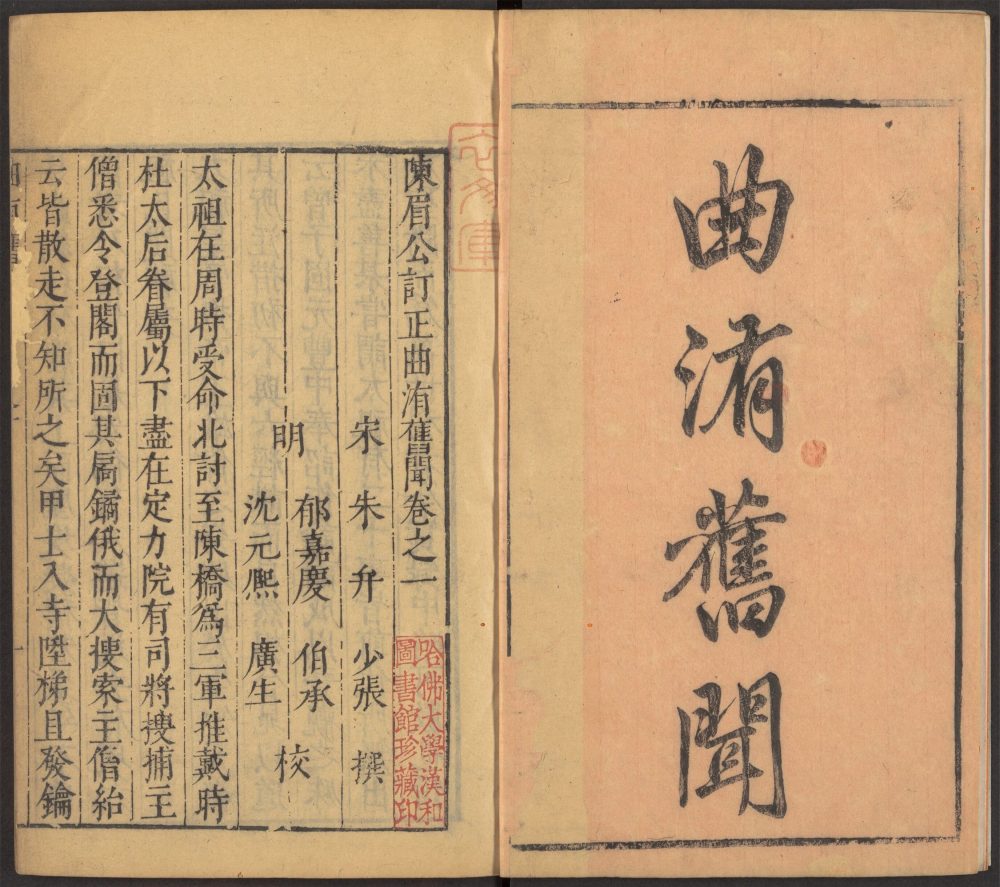 曲洧舊聞
陳眉公訂正曲洧舊聞卷之一
宋 朱弁 少張 撰
明 郁嘉慶 伯承 校
沈元熈 廣生
太祖在周時受命北討至陳橋爲三軍推戴時
杜太后眷屬以下盡在定力院有司將搜捕主
僧悉令登閣而固其扄鐍俄而大搜索主僧紿
云皆散走不知所之矣甲士入寺陞梯且發鑰
哈佛大學漢和
圖書館珍藏印